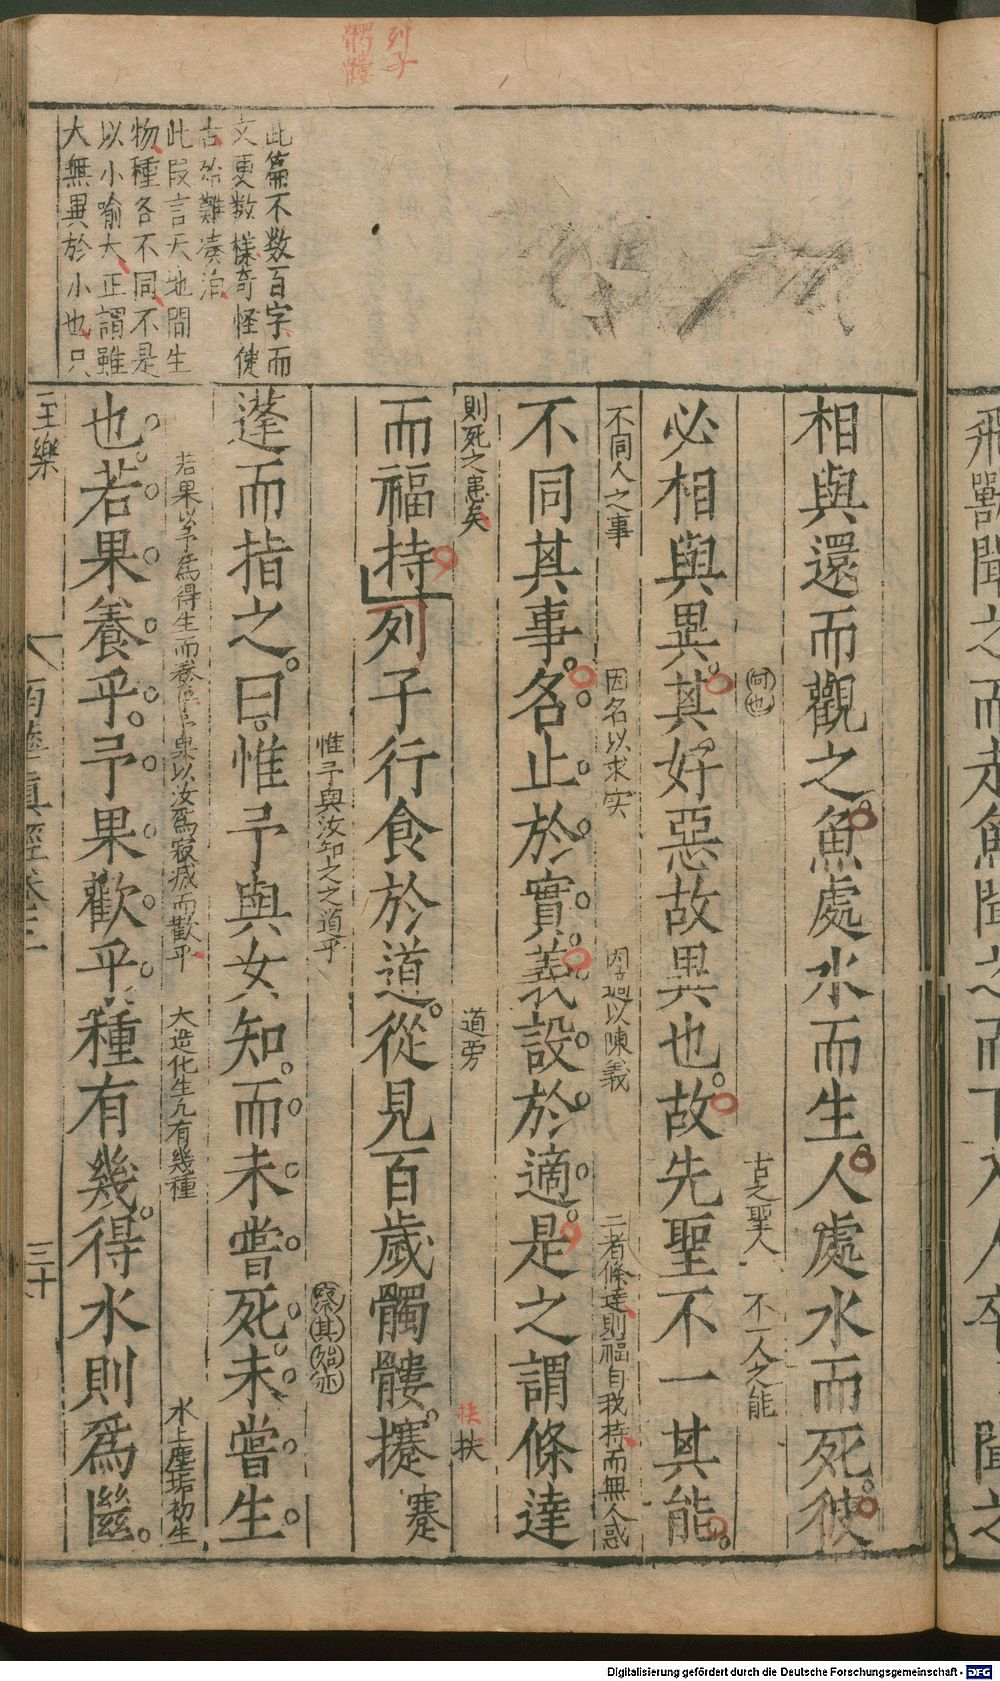 列子
髑髏
此篇不数百字而
文更数様竒怪使
古始難湊泊
此段言天地間生
物種各不同不是
以小喻大正謂雖
大無異於小也只
相與還而觀之魚處水而生人處水而死彼
何也
古之聖人
不一人之能
必相與異其好惡故異也故先聖不一其能
不同人之事
因名以求实
以陳義
二者條達則福自我持而無人惑
不同其事名止於實義設於適是之謂條達
則死之患矣
道旁
扶
扶
而福持列子行食於道從見百歲髑髏攓蹇
惟予與汝知之之道乎
蓬而指之曰惟予與女知而未嘗死未嘗生
若果以予為得生而
以汝爲寂㓕而歡乎
大造化生凢有幾種
水上塵垢初生
也若果養乎予果歡乎種有幾得水則爲㡭
至樂
南華真經卷三
三十
飛獸聞之而走魚聞之而下入人卒聞之
Digitalisierung gefördert durch die Deutsche Forschungsgemeinschaft - DFG